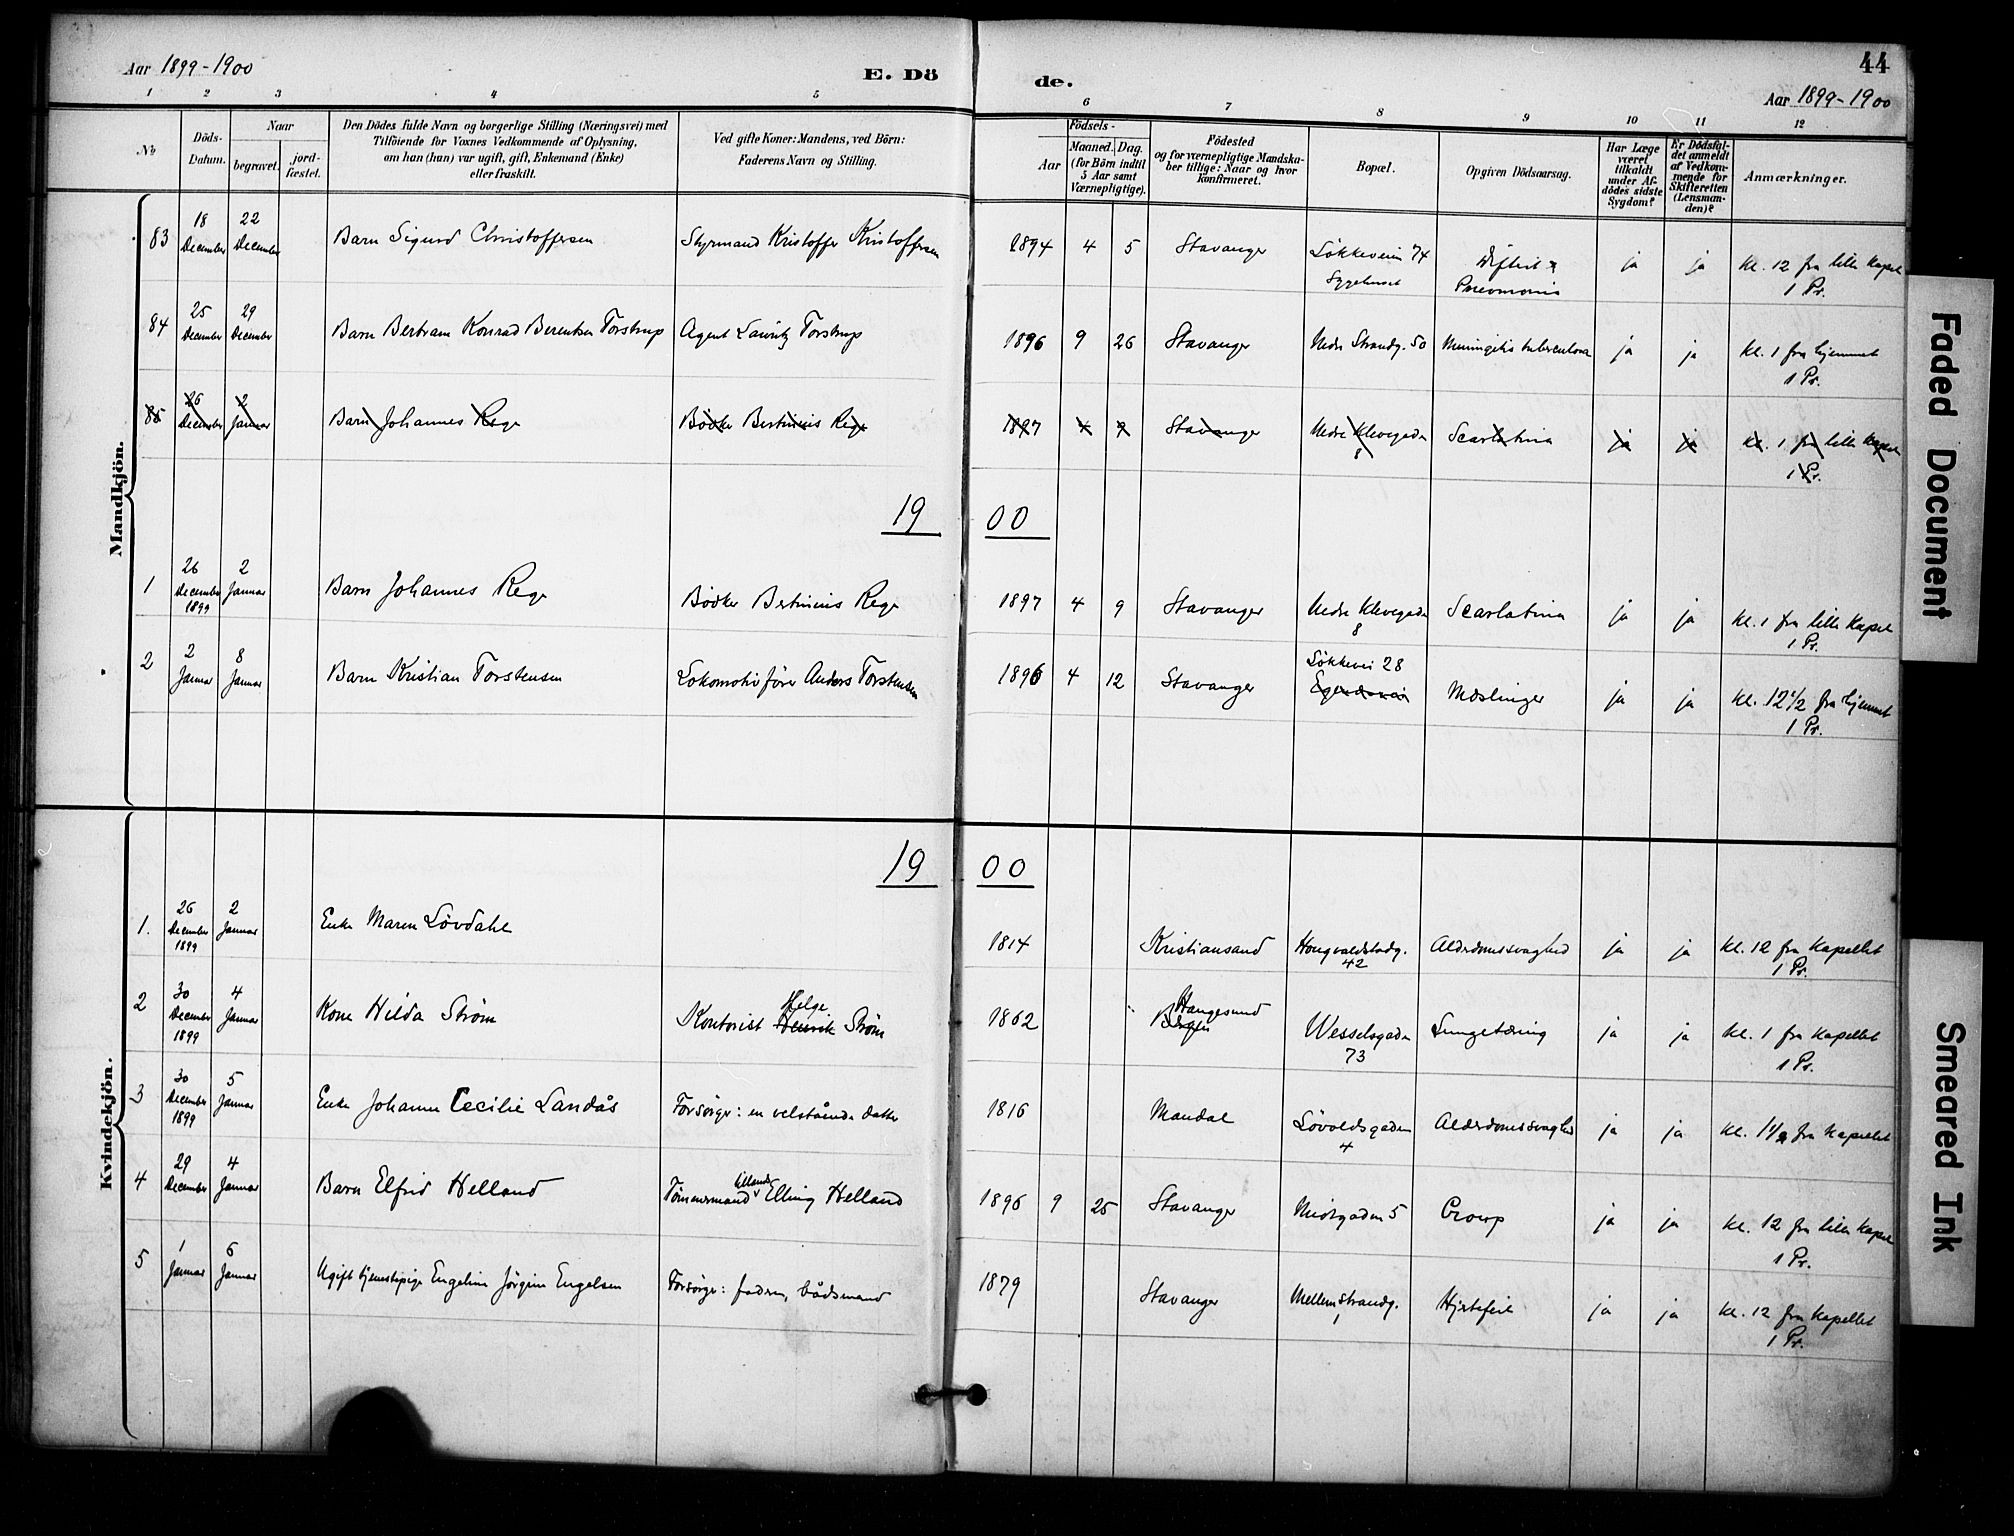 Aar 1899-1900 E. Dö de. 44
Aar 1899-1900
1 2 3 4 5 6 7 8 9 10 11 12
No
Döds-
Datum.
Naar
begravet.
jord-
fæstet.
Den Dödes fulde Navn og borgerlige Stilling (Næringsvei) med
Tilföiende for Voxnes Vedkommende af Oplysning,
om han (hun) var ugift, gift, Enkemand (Enke)
eller fraskilt.
Ved gifte Koner: Mandens, ved Börn:
Faderens Navn og Stilling.
Födsels-
Aar
Maaned.
Dag.
(for Börn indtil
5 Aar samt
Værnepligtige).
Födested
og for værnepligtige Mandska-
ber tillige: Naar og hvor
konfirmeret.
Bopæl.
Opgiven Dödsaarsag.
Har Læge
været
tilkaldt
under Af-
dödes sidste
Sygdom?
Er Dödsfal-
det anmeldt
af Vedkom-
mende for
Skifteretten
(Lensman-
den)?
Anmærkninger.
Mandkjön.
83 18 December 22 December Barn Sigurd Christoffersen Styrmand Kristoffer Kristoffersen 1894 4 5 Stavanger Løkkeveien 74 Sygehuset Difterit Pneumonia ja ja kl. 12 fra lille kapel
1 Pr.
84 25 December 29 December Barn Bertram Konrad Berentsen Torstrup Agent Lauritz Torstrup 1896 9 26 Stavanger Nedre Strandg. 50 Meningitis tuberculosa ja ja kl. 1 fra hjemmet
1 Pr.
85 26 December 2 Januar Barn Johannes Rege Bødker Bertinius Rege 1897 4 9 Stavanger Nedre Klevegaden 8 Scarlatina ja ja kl. 1 fra lille kapel
1 Pr.
19 00
1 26 December 1899 2 Januar Barn Johannes Rege Bødker Bertinius Rege 1897 4 9 Stavanger Nedre Klevegaden 8 Scarlatina ja ja kl. 1 fra lille kapel
1 Pr.
2 2 Januar 8 Januar Barn Kristian Torstensen Lokomotivfører Anders Torstensen 1896 4 12 Stavanger Løkkevei 28 Mæslinger ja ja kl. 12 1/2 fra hjemmet
1 Pr.
Kvindekjön.
19 00
1. 26 December 1899 2 Januar Enke Maren Løvdahl 1814 Kristiansand Hongvaldstadg. 42 Alderdomssvaghed ja ja kl. 12 fra Kapellet
1 Pr.
2 30 December 1899 4 Januar Kone Hilda Strøm Kontorist Henrik Helge Strøm 1862 Bergen Haugesund Wesselsgaden 73 Lungetæring ja ja kl. 1 fra Kapellet
1 Pr.
3 30 December 1899 5 Januar Enke Johanne Cecilie Landås Forsørger: en velstående datter 1816 Mandal Løvoldsgaden 4 Alderdomssvaghed ja ja kl. 1 1/2 fra Kapellet
4 29 December 4 Januar Barn Elfrid Helland Tømmermand Elling Helland 1896 9 25 Stavanger Midtgaden 5 Croup ja ja kl. 12 fra lille kapel
1 Pr.
5 1 Januar 6 Januar Ugift tjenestepige Engeline Jørgine Engelsen Forsørger: faderen, bådsmand 1879 Stavanger Mellemstrandg. 1 Hjertefeil ja ja kl. 12 fra Kapellet
1 Pr.
Faded Document
Smeared Ink